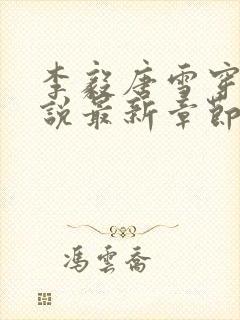 李毅唐雪穿
說最新章節
馮雲喬